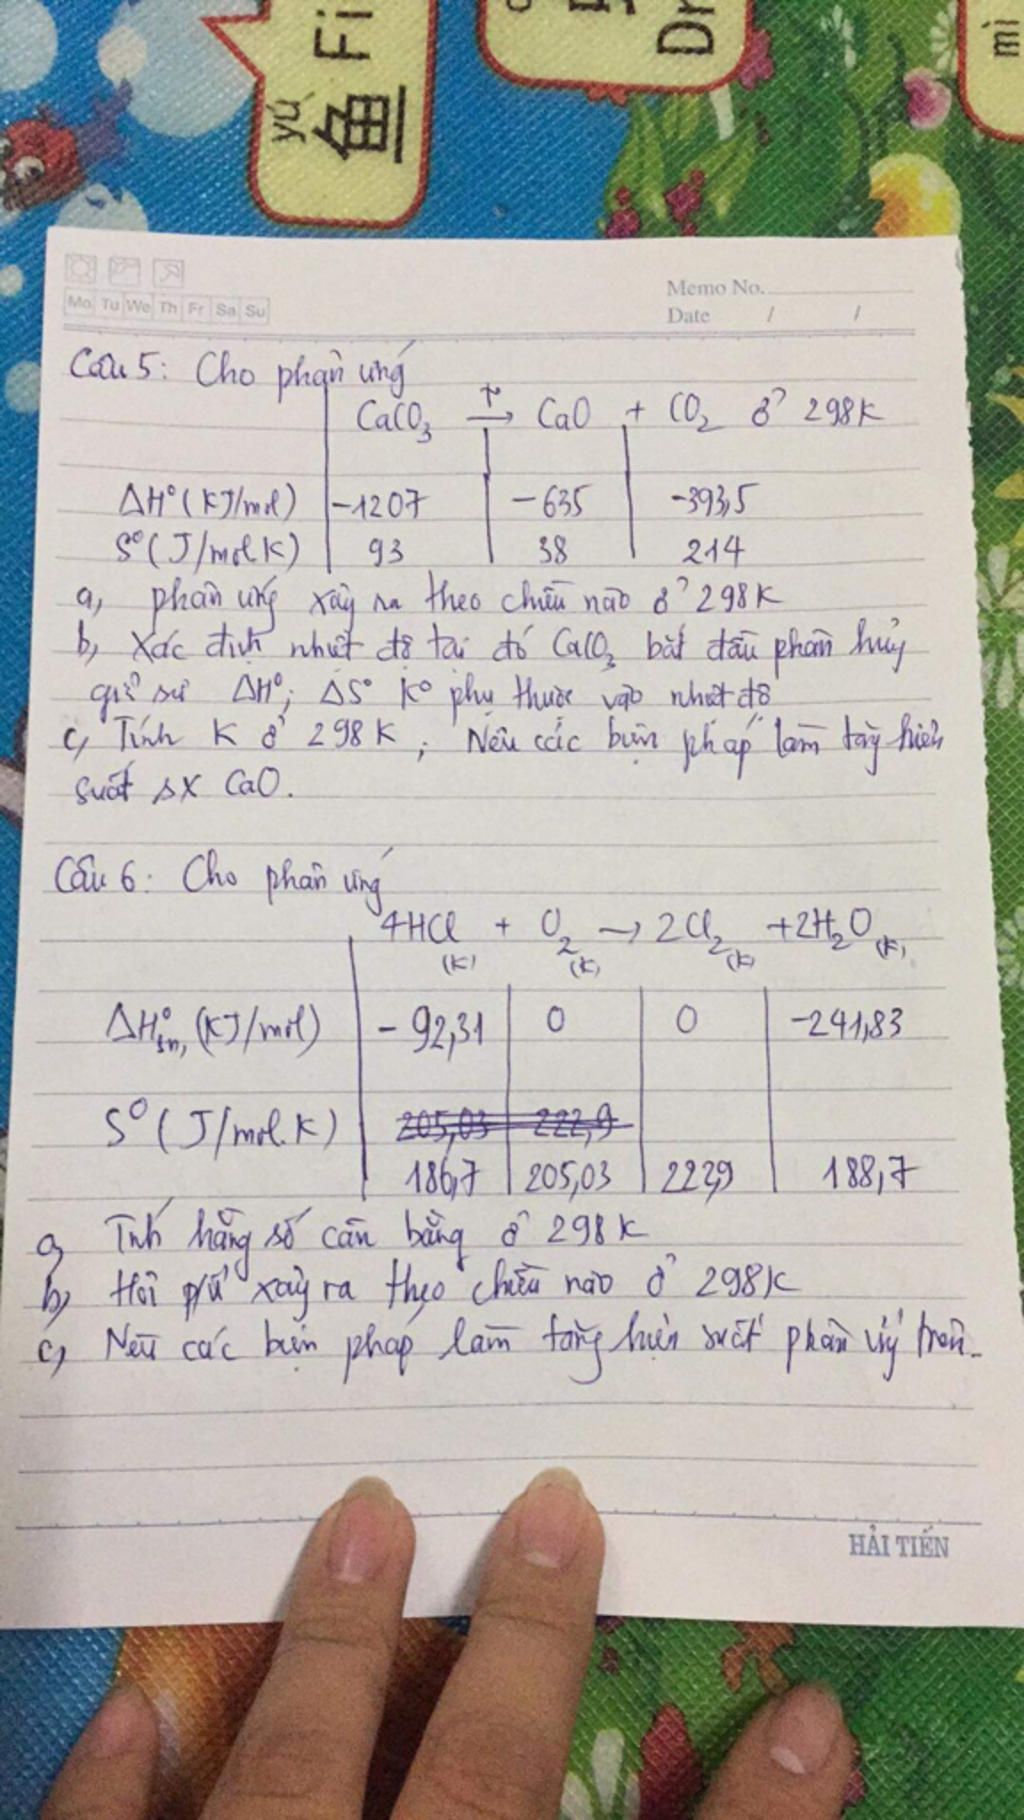 yú
鱼 Fi
Dr
mì
Mo Tu We Th Fr Sa Su
Memo No.
Date / /
Câu 5: Cho phản ứng
CaCO₃ →(t°) CaO + CO₂ ở 298K
ΔH° (KJ/mol) -1207 -635 -393,5
S° (J/mol.K) 93 38 214
a, phản ứng xảy ra theo chiều nào ở 298K
b, Xác định nhiệt độ tại đó CaCO₃ bắt đầu phân hủy
giả sử ΔH°; ΔS° K° phụ thuộc vào nhiệt độ
c, Tính K ở 298K; Nêu các biện pháp làm tăng hiệu
suất sx CaO.
Câu 6: Cho phản ứng
4HCl (K) + O₂ (K) → 2Cl₂ (K) + 2H₂O (K)
ΔH°sn, (KJ/mol) -92,31 0 0 -241,83
S° (J/mol.K) 205,03 222,9
186,7 205,03 222,9 188,7
a, Tính hằng số cân bằng ở 298K
b, Hỏi p/ư xảy ra theo chiều nào ở 298K
c, Nêu các biện pháp làm tăng hiệu suất phản ứng trên.
HẢI TIẾN